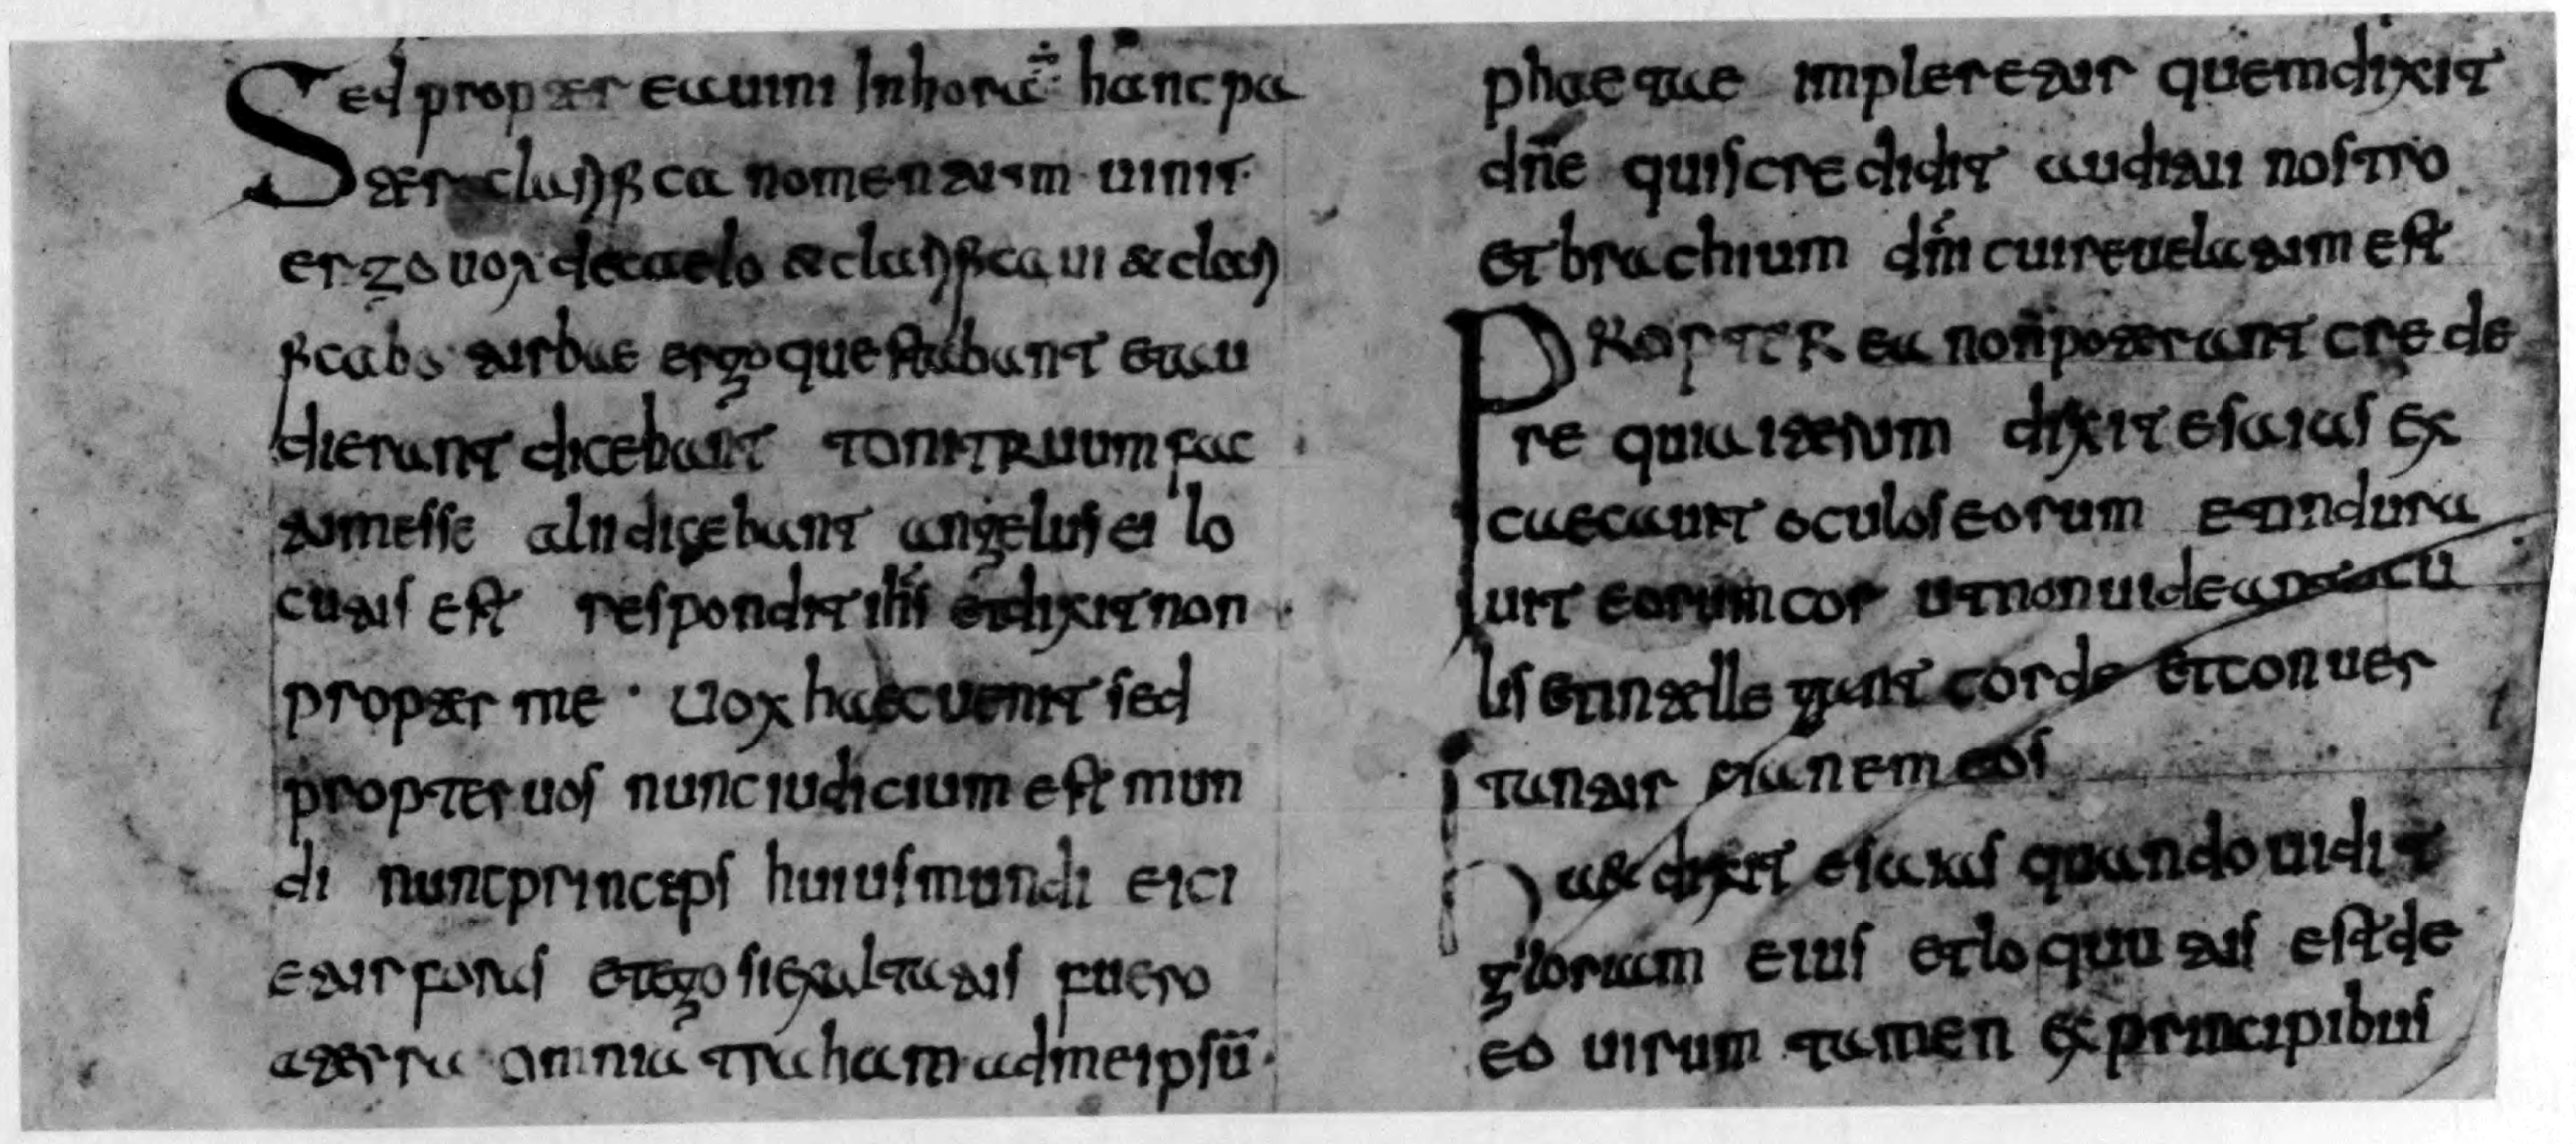 Sed propter ea ueni In hora hanc pa
ter clarifica nomen tuum uinit
ergo uox de caelo et clarificaui et clari
ficabo turbae ergo que stabant et au
dierant dicebant tonitruum fac
tum esse alii dicebant angelus ei lo
cutus est respondit ihs et dixit non
propter me uox haec uenit sed
propter uos nunc iudicium est mun
di nunc princeps huius mundi eici
etur foras et ego si exaltatus fuero
a terra omnia traham ad me ipsū
phaetae impleretur quem dixit
dn̄e quis credidit auditui nostro
et brachium dn̄i cui reuelatum est
PROPTER ea non poterant crede
re quia iterum dixit esaias ex
caecauit oculos eorum et indura
uit eorum cor ut non uideant ocu
lis et intellegant corde et conuer
tantur et sanem eos
haec dixit esaias quando uidit
gloriam eius et loquutus est de
eo uirum tamen ex principibus